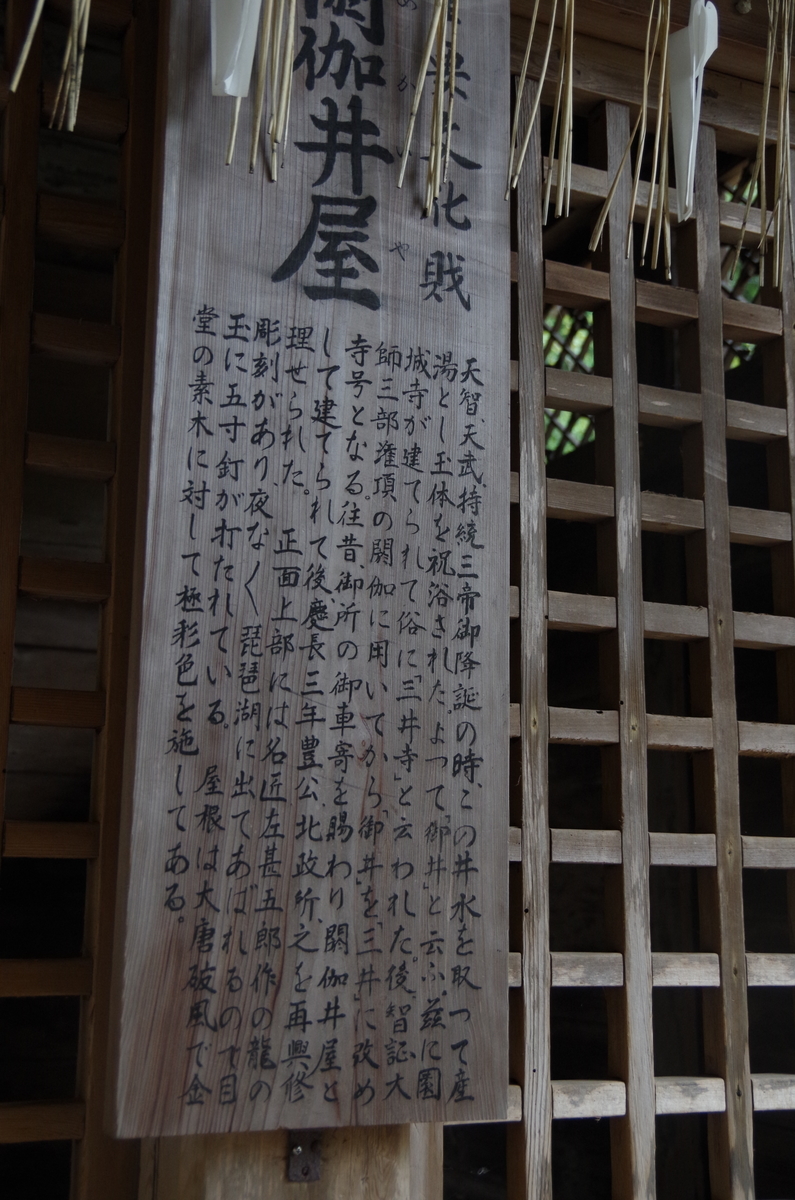 要文化財
閼伽井屋
や
天智、天武、持統三帝御降誕の時、この井水を取って産
湯とし玉体を祝浴された。よって「御井」と云ふ。茲に園
城寺が建てられて俗に「三井寺」と云われた。後、智証大
師三部潅頂の閼伽に用いてから「御井」を「三井」に改め
寺号となる。往昔、御所の御車寄を賜わり、閼伽井屋と
して建てられて後、慶長三年豊公、北政所之を再興修
理せられた。 正面上部には名匠左甚五郎作の龍の
彫刻があり、夜な〱琵琶湖に出てあばれるので目
玉に五寸釘が打たれている。 屋根は大唐破風で金
堂の素木に対して極彩色を施してある。